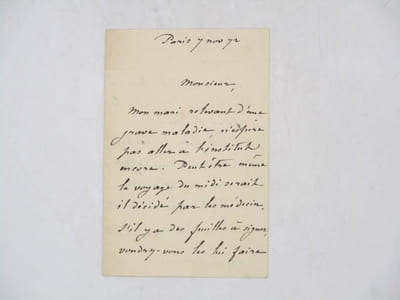 Paris 7 nov 72
Monsieur,
Mon mari relevant d'une
grave maladie, n'espère
pas aller à l'institut
encore. Peut être même
le voyage du midi serait
il décidé par les médecins.
S'il y a des feuilles à signer,
voudrez-vous les lui faire